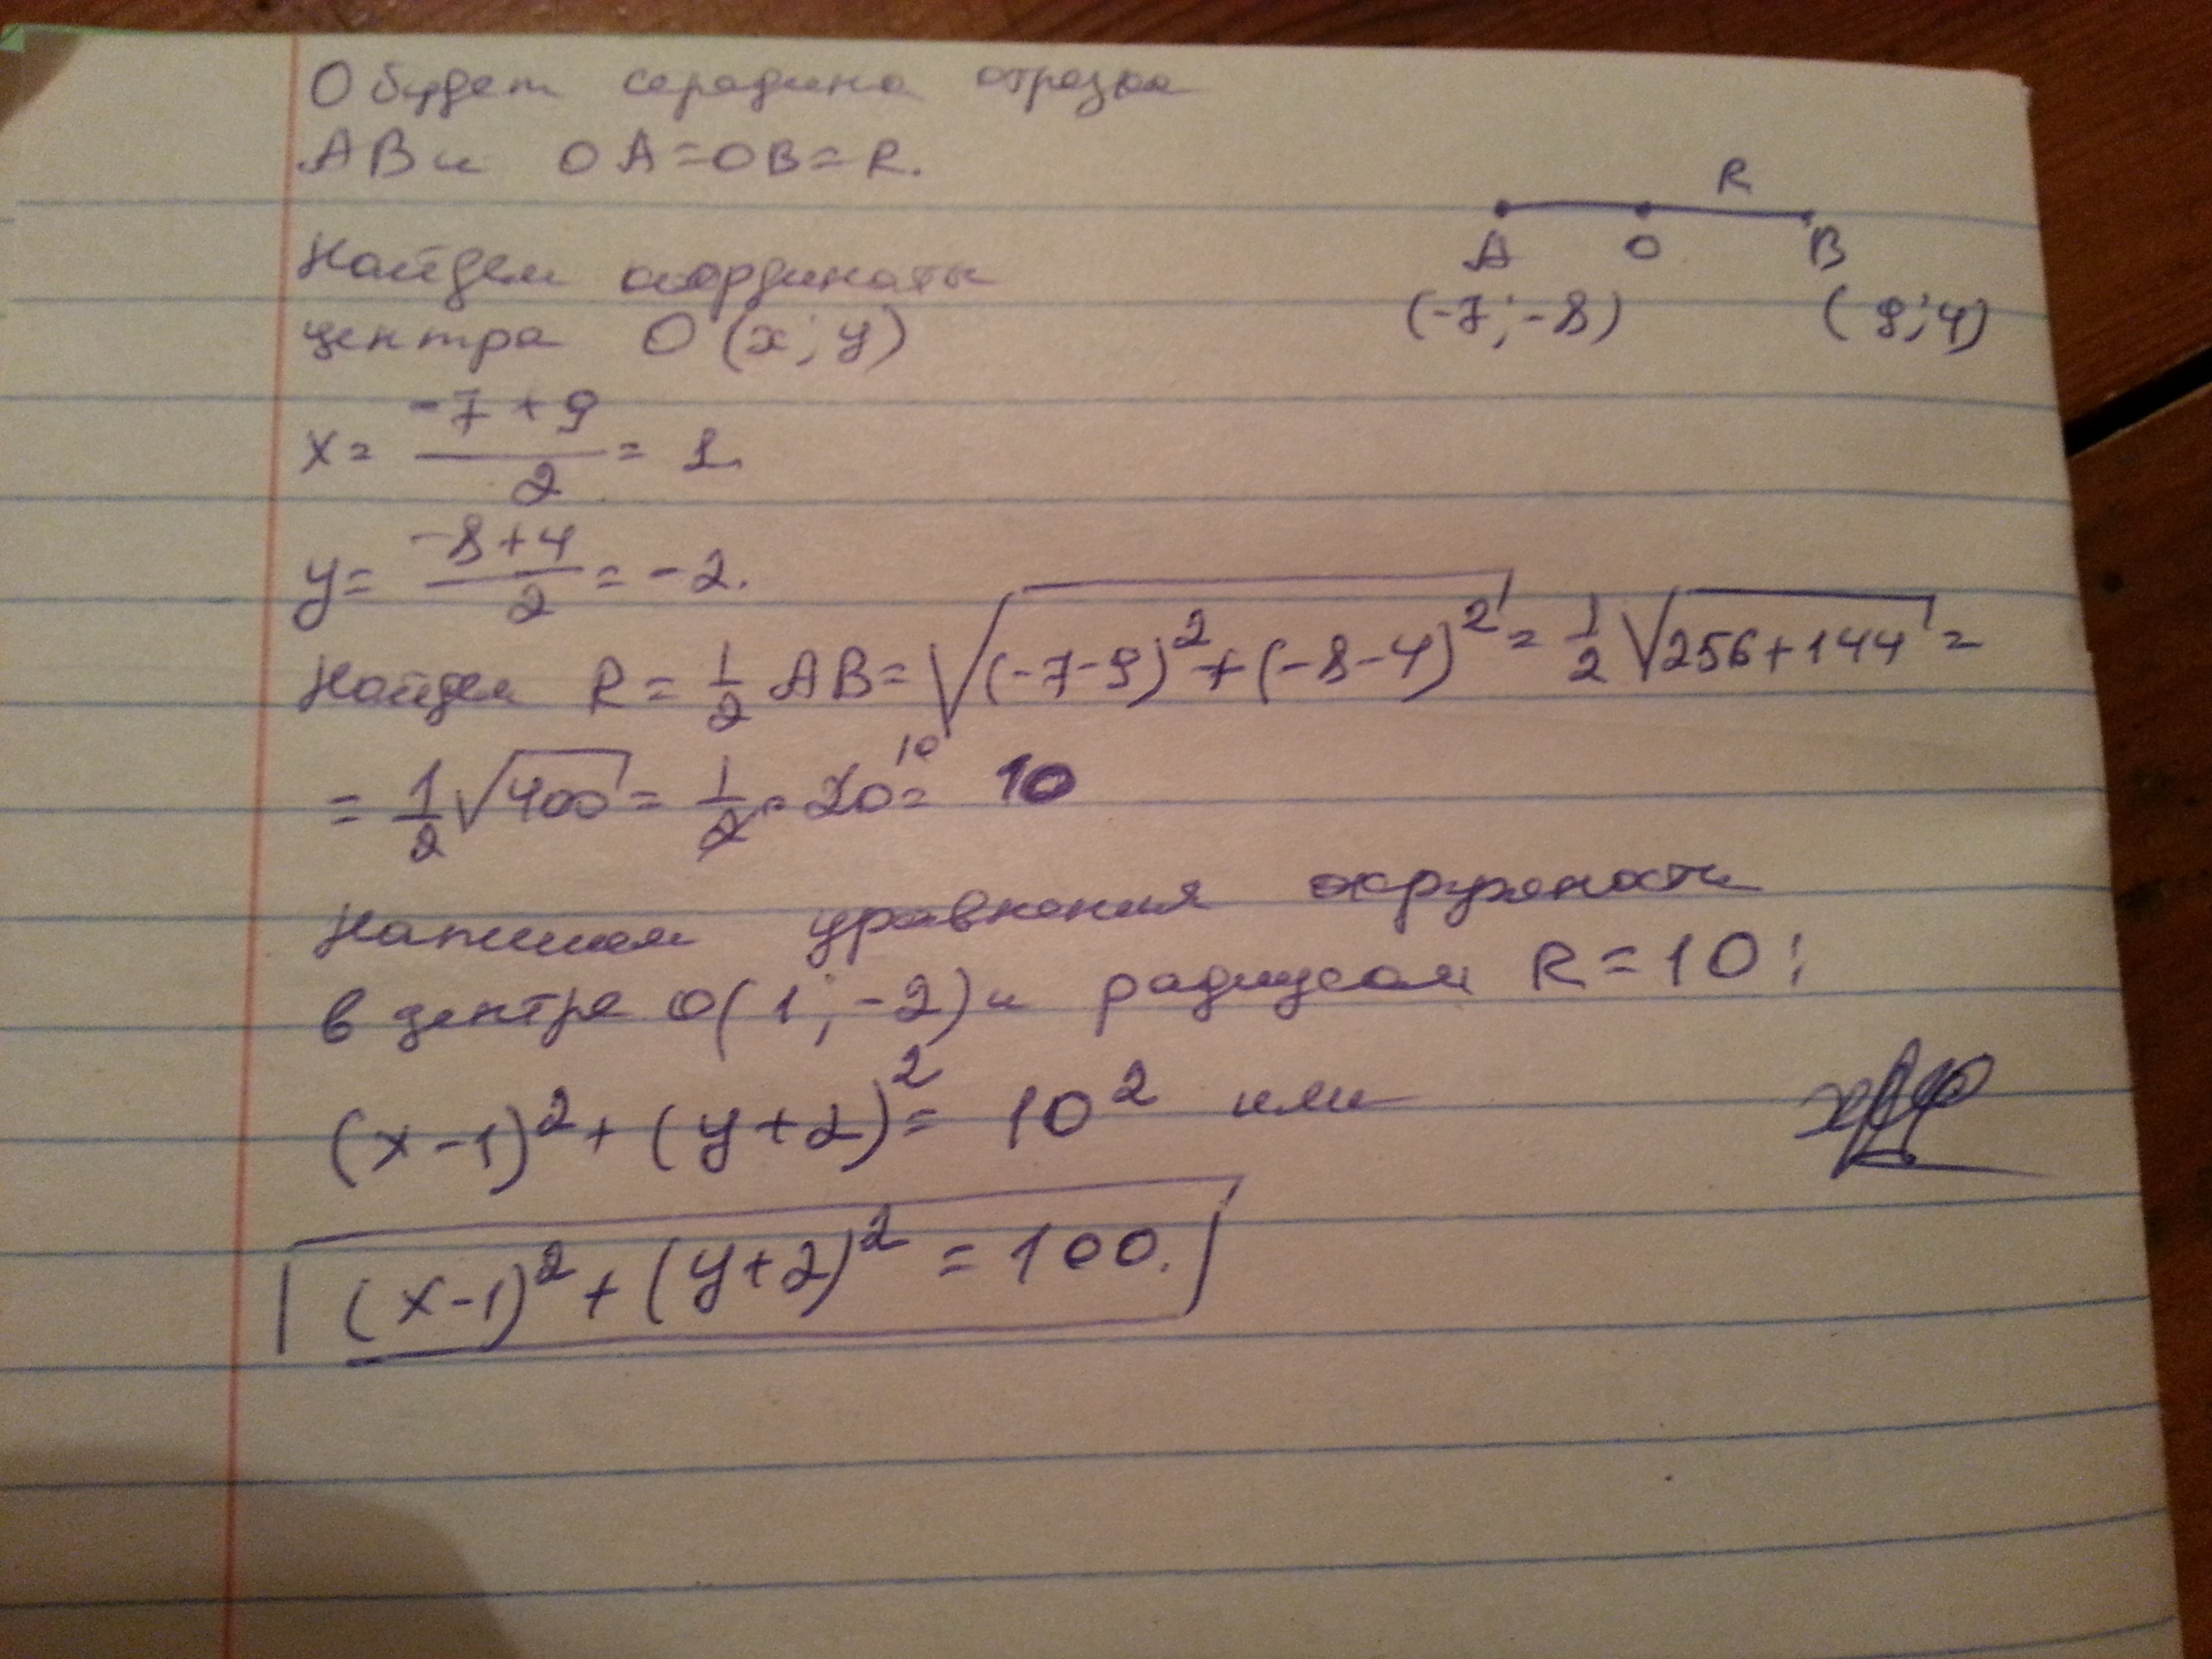 О будет середина отрезка
AB и OA=OB=R.
R
A O B
(-7;-8) (9;4)
Найдем координаты
центра O(x;y)
x = (-7+9)/2 = 1.
y = (-8+4)/2 = -2.
Найдем R = 1/2 AB = √((-7-9)²+(-8-4)²) = 1/2 √(256+144) =
= 1/2 √400 = 1/2 · 20 10 = 10
Напишем уравнения окружности
в центре O(1;-2) и радиусом R=10:
(x-1)²+(y+2)² = 10² или
(x-1)²+(y+2)² = 100.